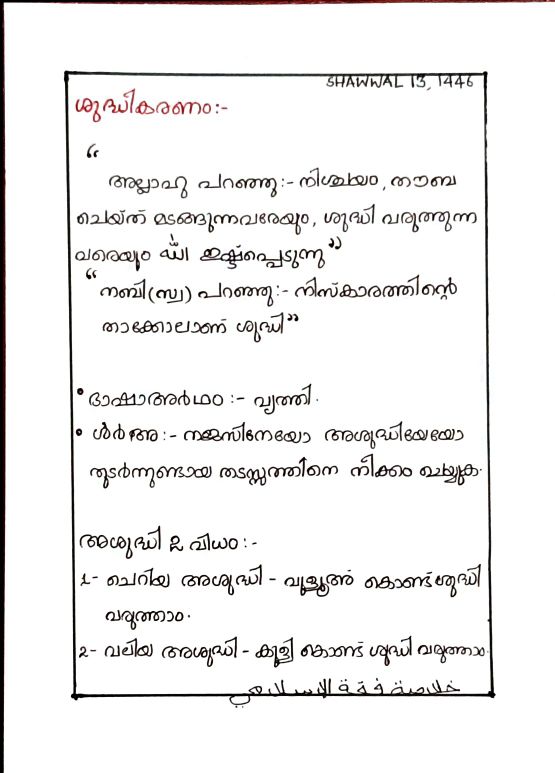 SHAWWAL 13, 1446
ശുദ്ധീകരണം:-
“
അല്ലാഹു പറഞ്ഞു:- നിശ്ചയം, തൗബ
ചെയ്ത് മടങ്ങുന്നവരേയും, ശുദ്ധി വരുത്തുന്ന
വരെയും ഇഷ്ടപ്പെടുന്നു”
“നബി(സ്വ) പറഞ്ഞു:- നിസ്കാരത്തിന്റെ
താക്കോലാണ് ശുദ്ധി”
• ഭാഷാഅർഥം:- വൃത്തി.
• ശർഅ:- നജസിനേയോ അശുദ്ധിയേയോ
തുടർന്നുണ്ടായ തടസ്സത്തിനെ നീക്കം ചെയ്യുക.
അശുദ്ധി 2 വിധം:-
1- ചെറിയ അശുദ്ധി - വുളൂഅ് കൊണ്ട് ശുദ്ധി
വരുത്താം.
2- വലിയ അശുദ്ധി - കുളി കൊണ്ട് ശുദ്ധി വരുത്താം.
خلاصة فقة الإسلامي